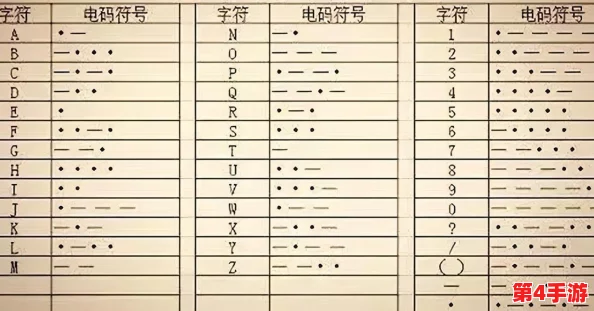 字符 电码符号 字符 电码符号 字符 电码符号
A • — N — • 1 • — — — —
B — • • • O — — — 2 • • — — —
C — • — • P • — — • 3 • • • — —
D — • • Q — — • — 4 • • • • —
E • R • — • 5 • • • • •
F • • — • S • • • 6 — • • • •
G — — • T — 7 — — • • •
H • • • • U • • — 8 — — — • •
I • • V • • • — 9 — — — —
J • — — — W • — — 0 — — — — —
K — • — X — • • — ? • • — — •
L • — • • Y — • — — / — • • — •
M — — Z — — • • ( ) — • — — •
—
•
第4手游